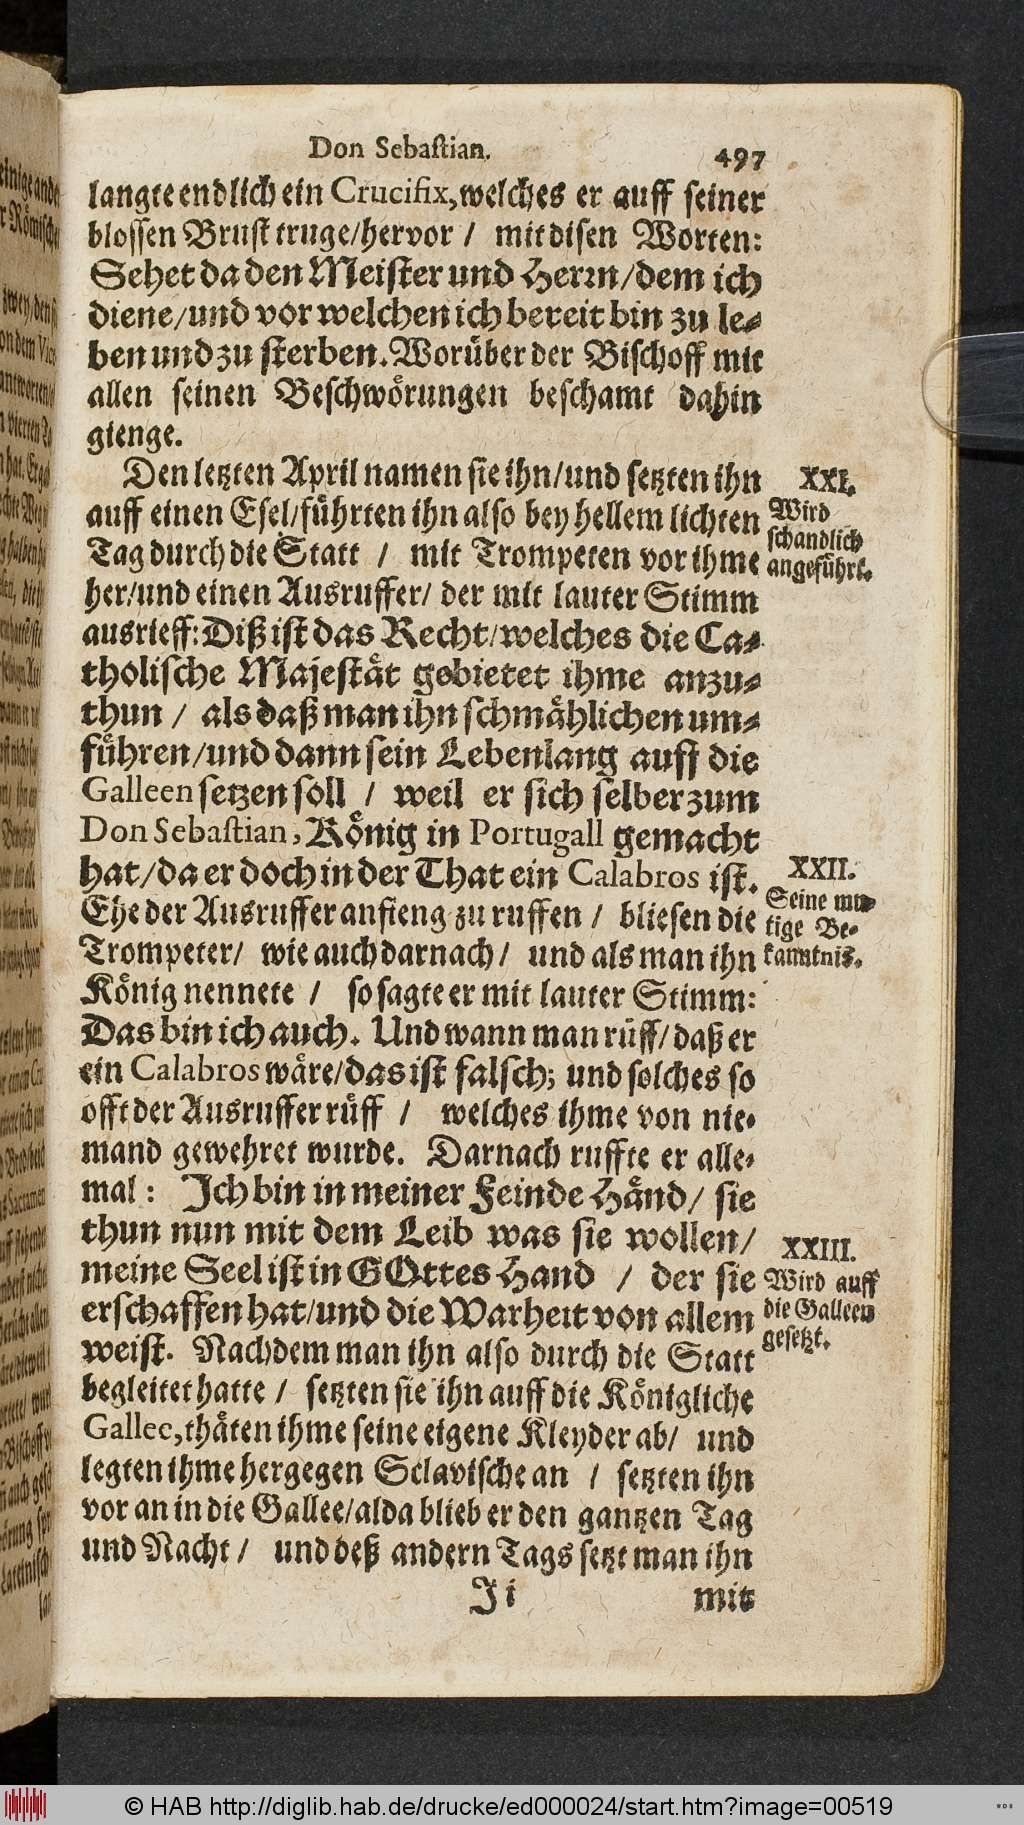 Don Sebastian.
497
langte endlich ein Crucifix, welches er auff seiner
blossen Brust truge/hervor / mit disen Worten:
Sehet da den Meister und Herrn/dem ich
diene/und vor welchen ich bereit bin zu le-
ben und zu sterben. Worüber der Bischoff mit
allen seinen Beschwörungen beschamt dahin
gienge.
Den letzten April namen sie ihn/und setzten ihn
auff einen Esel/führten ihn also bey hellem lichten
Tag durch die Statt / mit Trompeten vor ihme
her/und einen Ausruffer/ der mit lauter Stimm
ausrieff: Diß ist das Recht/welches die Ca-
tholische Majestät gebietet ihme anzu-
thun / als daß man ihn schmählichen um-
führen/und dann sein Lebenlang auff die
Galleen setzen soll / weil er sich selber zum
Don Sebastian, König in Portugall gemacht
hat/da er doch in der That ein Calabros ist.
Ehe der Ausruffer anfieng zu ruffen / bliesen die
Trompeter/ wie auch darnach/ und als man ihn
König nennete / so sagte er mit lauter Stimm:
Das bin ich auch. Und wann man rüff/daß er
ein Calabros wäre/das ist falsch; und solches so
offt der Ausruffer rüff / welches ihme von nie-
mand gewehret wurde. Darnach ruffte er alle-
mal: Ich bin in meiner Feinde Händ/ sie
thun nun mit dem Leib was sie wollen/
meine Seel ist in GOttes Hand / der sie
erschaffen hat/und die Warheit von allem
weist. Nachdem man ihn also durch die Statt
begleitet hatte / setzten sie ihn auff die Königliche
Gallee, thäten ihme seine eigene Kleyder ab/ und
legten ihme hergegen Sclavische an / setzten ihn
vor an in die Gallee/alda blieb er den gantzen Tag
und Nacht/ und deß andern Tags setzt man ihn
Ji
mit
XXI.
Wird
schandlich
angeführt.
XXII.
Seine mu-
tige Be-
kanntnis.
XXIII.
Wird auff
die Galleen
gesetzt.
© HAB http://diglib.hab.de/drucke/ed000024/start.htm?image=00519